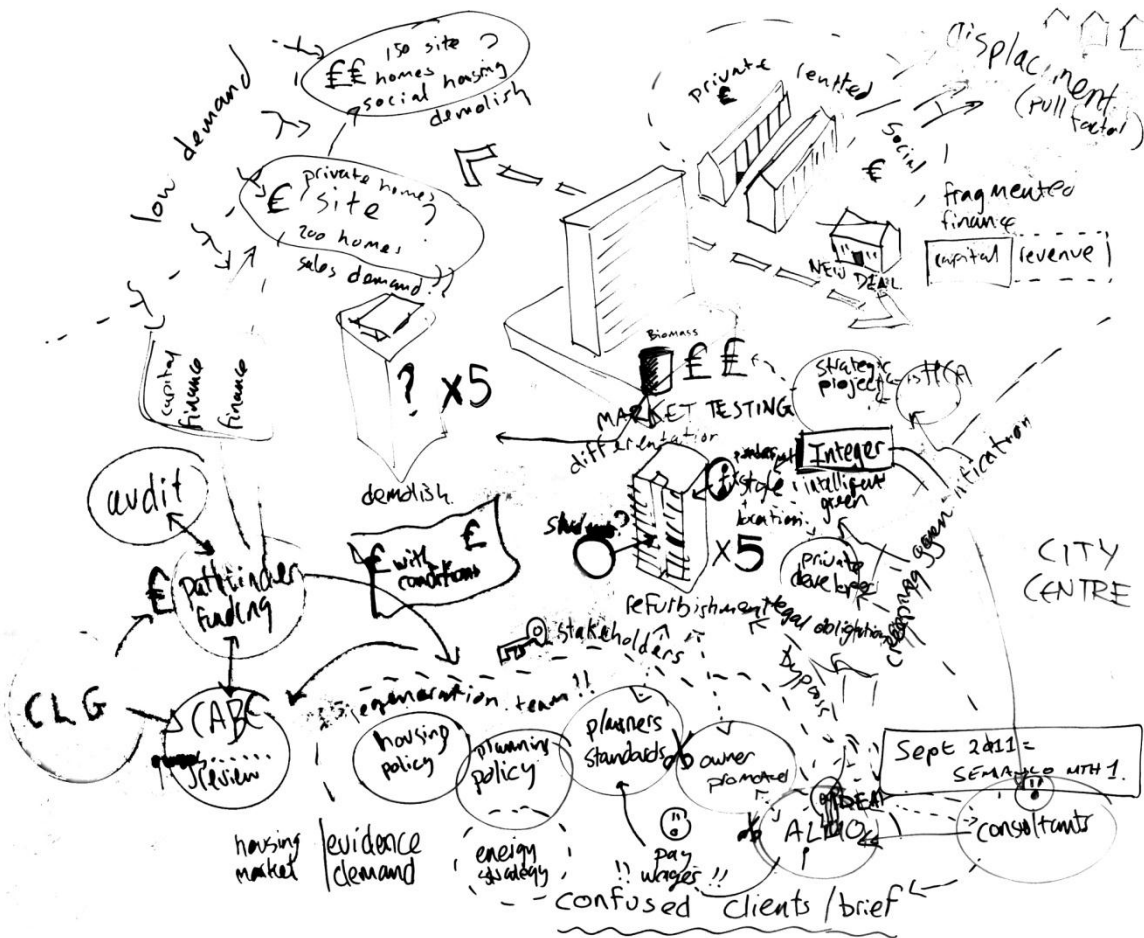 ££
150 site ?
homes
social housing
demolish
low demand
£
private homes
site ?
200 homes
sales demand !!
private rented
£
social
£
displacement
(pull factor)
fragmented
finance
capital
revenue
NEW DEAL
capital
finance
finance
? x5
demolish
Biomass
£ £
MARKET TESTING
differentiation
strategic
project
Integer
intelligent
green
style
+
location
x5
refurbishment
private
developer
legal obligation
creeping gentrification
CITY
CENTRE
audit
£
pathfinder
funding
£
£
with
conditions
stakeholders
CLG
CABE
review
regeneration team !!
housing
policy
planning
policy
planners
standards
owner
promoted
bypass
Sept 2011 =
SEMANCO MTH 1.
ALMO
consultants
housing
market
/evidence
demand
energy
strategy
!! pay
wages !!
confused clients / brief